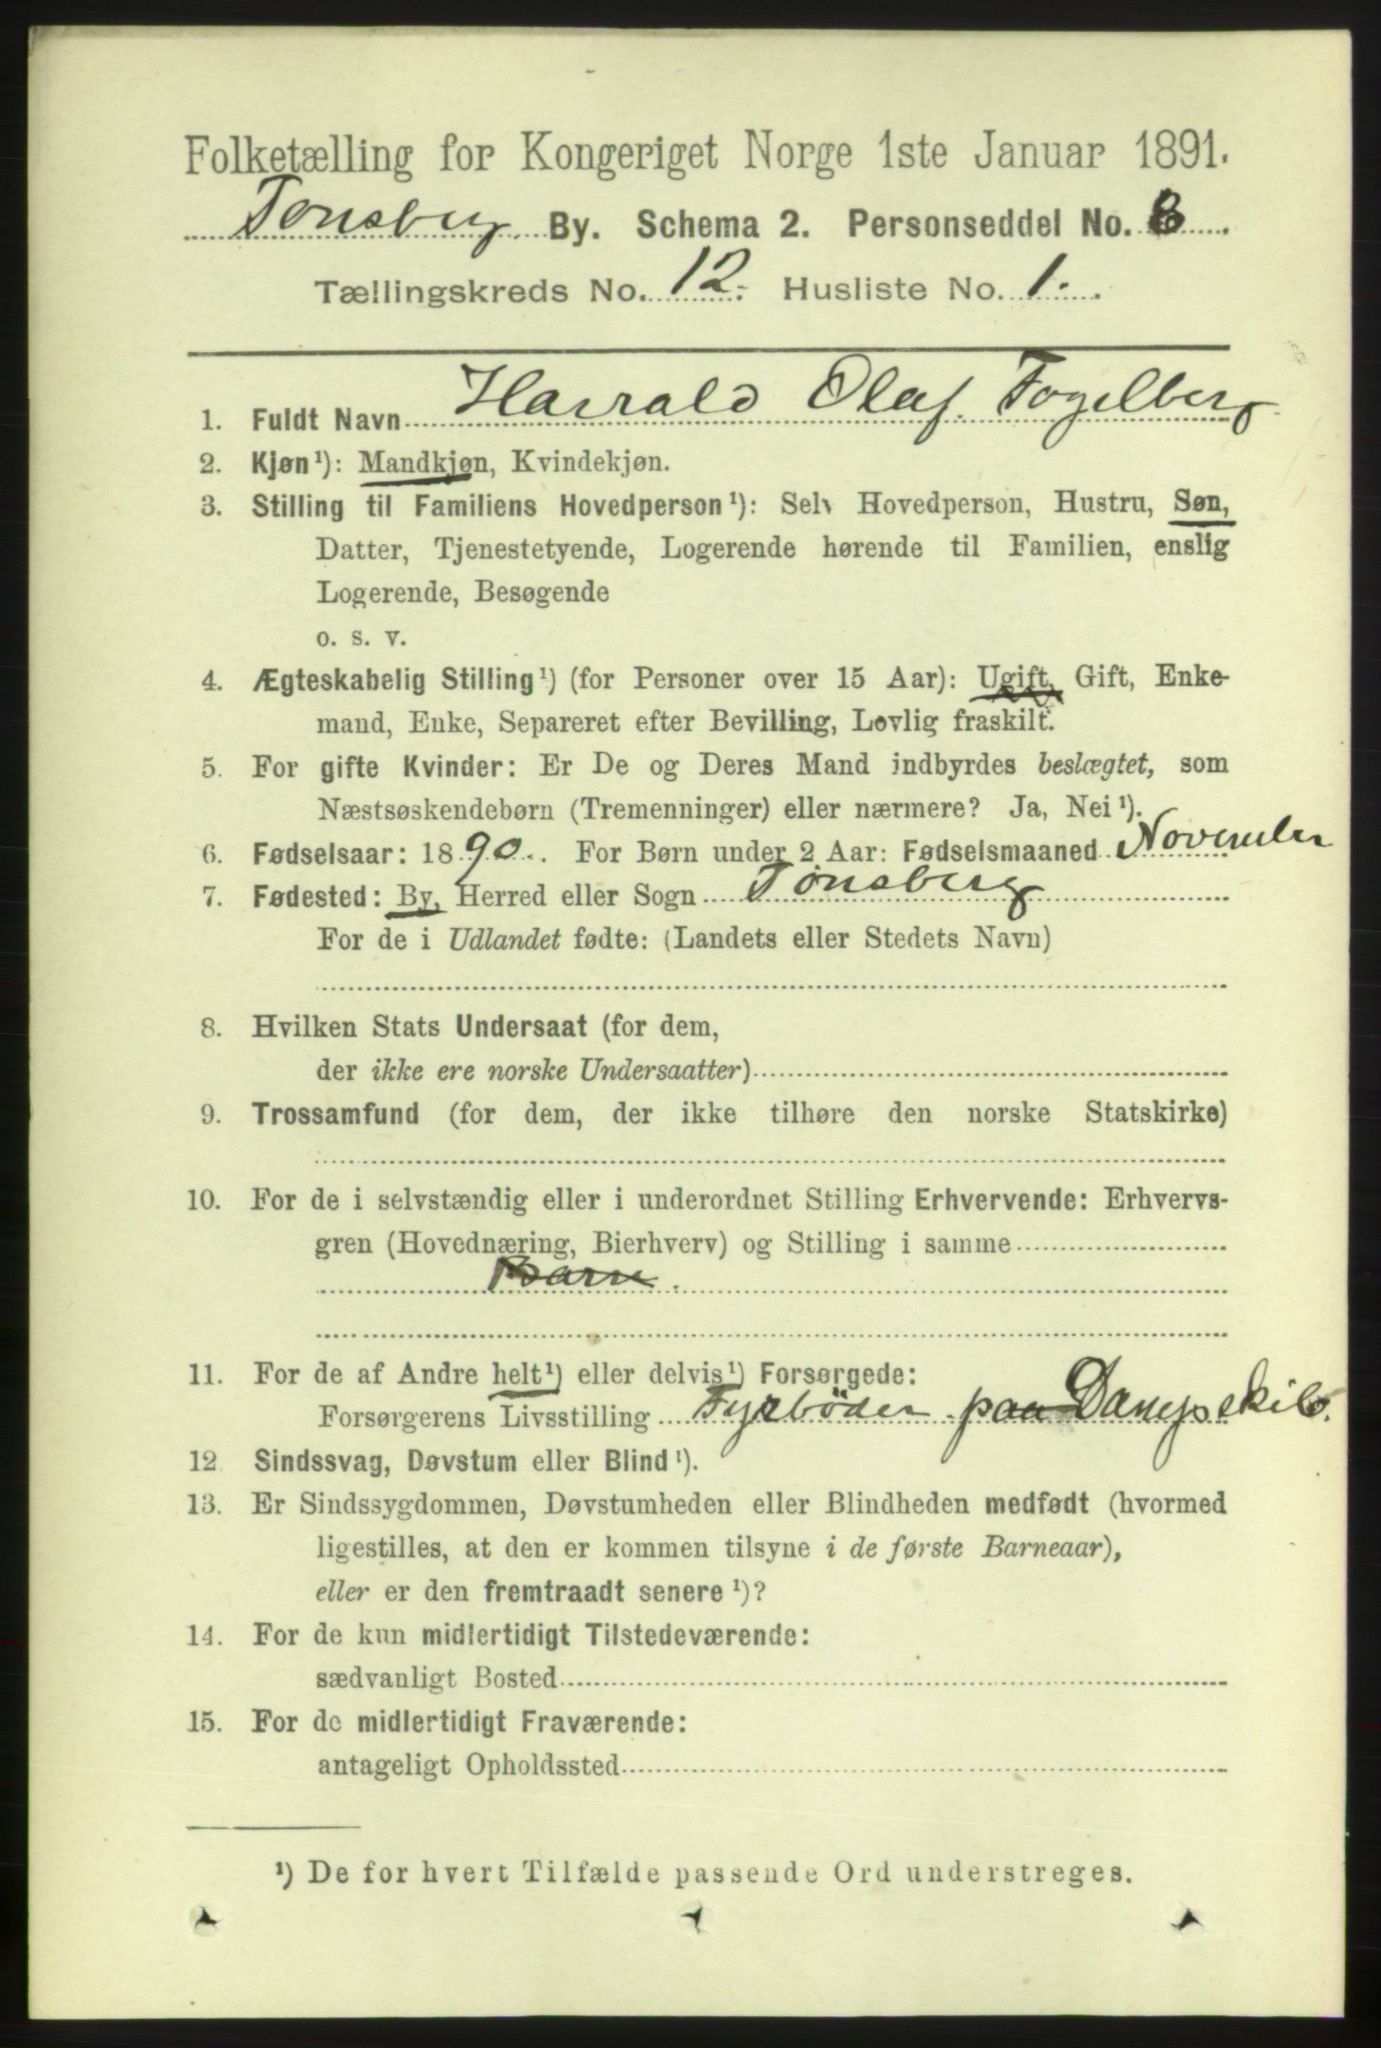 Folketælling for Kongeriget Norge 1ste Januar 1891.
Tønsberg By. Schema 2. Personseddel No.
Tællingskreds No. 12. Husliste No. 1.
1. Fuldt Navn Harrald Olaf Fogelberg
2. Kjøn¹): Mandkjøn, Kvindekjøn.
3. Stilling til Familiens Hovedperson¹): Selv Hovedperson, Hustru, Søn,
Datter, Tjenestetyende, Logerende hørende til Familien, enslig
Logerende, Besøgende
o. s. v.
4. Ægteskabelig Stilling¹) (for Personer over 15 Aar): Ugift, Gift, Enke-
mand, Enke, Separeret efter Bevilling, Lovlig fraskilt.
5. For gifte Kvinder: Er De og Deres Mand indbyrdes beslægtet, som
Næstsøskendebørn (Tremenninger) eller nærmere? Ja, Nei¹).
6. Fødselsaar: 1890. For Børn under 2 Aar: Fødselsmaaned November
7. Fødested: By, Herred eller Sogn Tønsberg
For de i Udlandet fødte: (Landets eller Stedets Navn)
8. Hvilken Stats Undersaat (for dem,
der ikke ere norske Undersaatter)
9. Trossamfund (for dem, der ikke tilhøre den norske Statskirke)
10. For de i selvstændig eller i underordnet Stilling Erhvervende: Erhvervs-
gren (Hovednæring, Bierhverv) og Stilling i samme
Barn.
11. For de af Andre helt¹) eller delvis¹) Forsørgede:
Forsørgerens Livsstilling Fyrbøder paa Dampskib.
12. Sindssvag, Døvstum eller Blind¹).
13. Er Sindssygdommen, Døvstumheden eller Blindheden medfødt (hvormed
ligestilles, at den er kommen tilsyne i de første Barneaar),
eller er den fremtraadt senere¹)?
14. For de kun midlertidigt Tilstedeværende:
sædvanligt Bosted
15. For de midlertidigt Fraværende:
antageligt Opholdssted
¹) De for hvert Tilfælde passende Ord understreges.